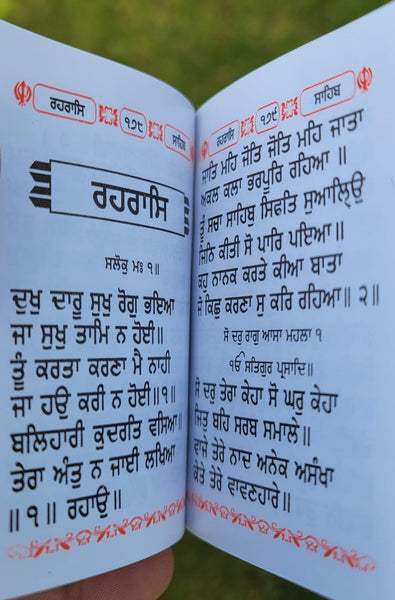 ਰਹਰਾਸਿ ੧੭੮ ਸਾਹਿਬ
ਰਹਰਾਸਿ
ਸਲੋਕੁ ਮਃ ੧॥
ਦੁਖੁ ਦਾਰੂ ਸੁਖੁ ਰੋਗੁ ਭਇਆ
ਜਾ ਸੁਖੁ ਤਾਮਿ ਨ ਹੋਈ॥
ਤੂੰ ਕਰਤਾ ਕਰਣਾ ਮੈ ਨਾਹੀ
ਜਾ ਹਉ ਕਰੀ ਨ ਹੋਈ॥੧॥
ਬਲਿਹਾਰੀ ਕੁਦਰਤਿ ਵਸਿਆ॥
ਤੇਰਾ ਅੰਤੁ ਨ ਜਾਈ ਲਖਿਆ
॥੧॥ ਰਹਾਉ॥
ਰਹਰਾਸਿ ੧੭੯ ਸਾਹਿਬ
ਜਾਤਿ ਮਹਿ ਜੋਤਿ ਜੋਤਿ ਮਹਿ ਜਾਤਾ
ਅਕਲ ਕਲਾ ਭਰਪੂਰਿ ਰਹਿਆ ॥
ਤੂੰ ਸਚਾ ਸਾਹਿਬੁ ਸਿਫਤਿ ਸੁਆਲ੍ਹਿਉ
ਜਿਨਿ ਕੀਤੀ ਸੋ ਪਾਰਿ ਪਇਆ॥
ਕਹੁ ਨਾਨਕ ਕਰਤੇ ਕੀਆ ਬਾਤਾ
ਜੋ ਕਿਛੁ ਕਰਣਾ ਸੁ ਕਰਿ ਰਹਿਆ॥ ੨॥
ਸੋ ਦਰੁ ਰਾਗੁ ਆਸਾ ਮਹਲਾ ੧
ੴ ਸਤਿਗੁਰ ਪ੍ਰਸਾਦਿ॥
ਸੋ ਦਰੁ ਤੇਰਾ ਕੇਹਾ ਸੋ ਘਰੁ ਕੇਹਾ
ਜਿਤੁ ਬਹਿ ਸਰਬ ਸਮਾਲੇ॥
ਵਾਜੇ ਤੇਰੇ ਨਾਦ ਅਨੇਕ ਅਸੰਖਾ
ਕੇਤੇ ਤੇਰੇ ਵਾਵਣਹਾਰੇ॥